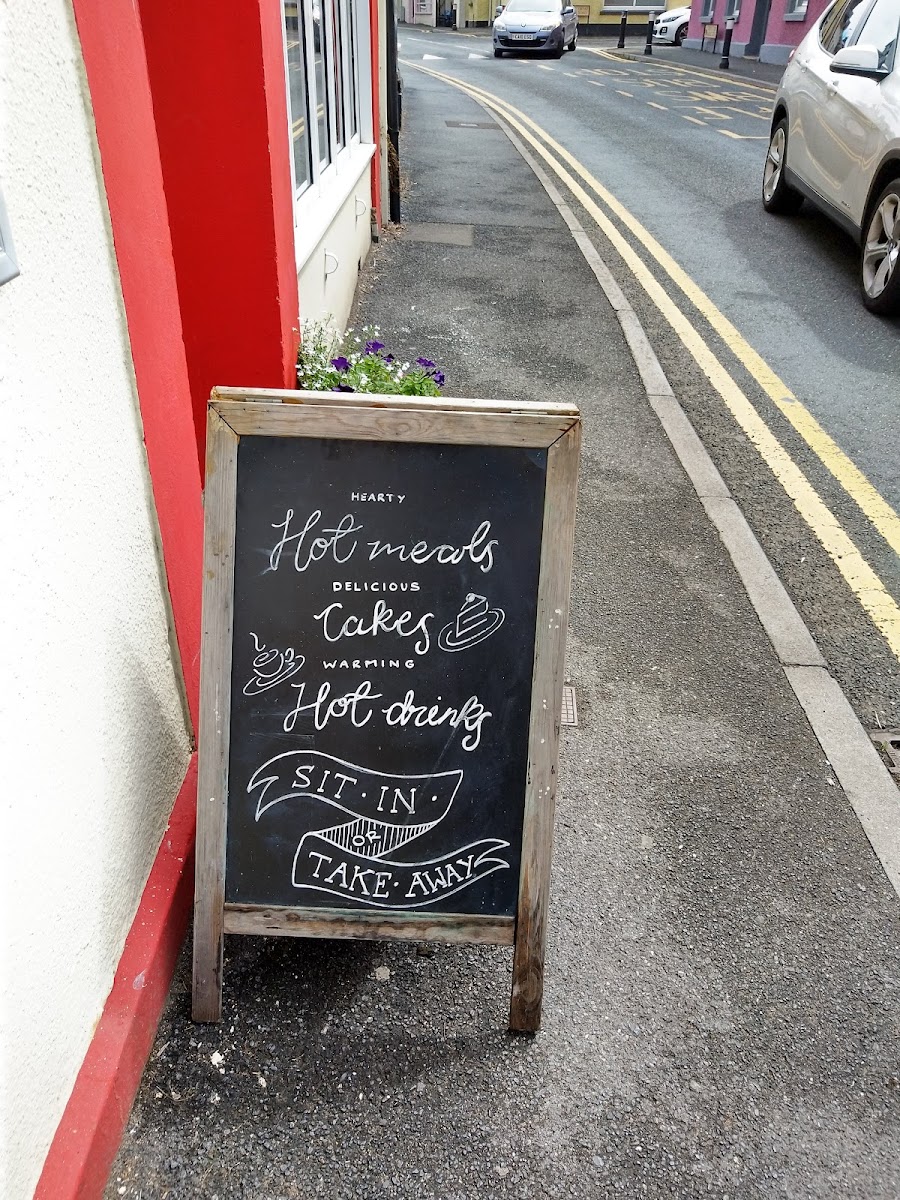 HEARTY
Hot meals
DELICIOUS
Cakes
WARMING
Hot drinks
SIT · IN ·
OR
TAKE · AWAY